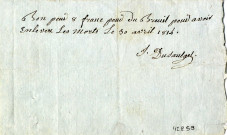 Bon pour 8 franc pour du Breuil pour avoir
Enlever Les Morts Le 30 avril 1814.
J. Dusaulget
42859